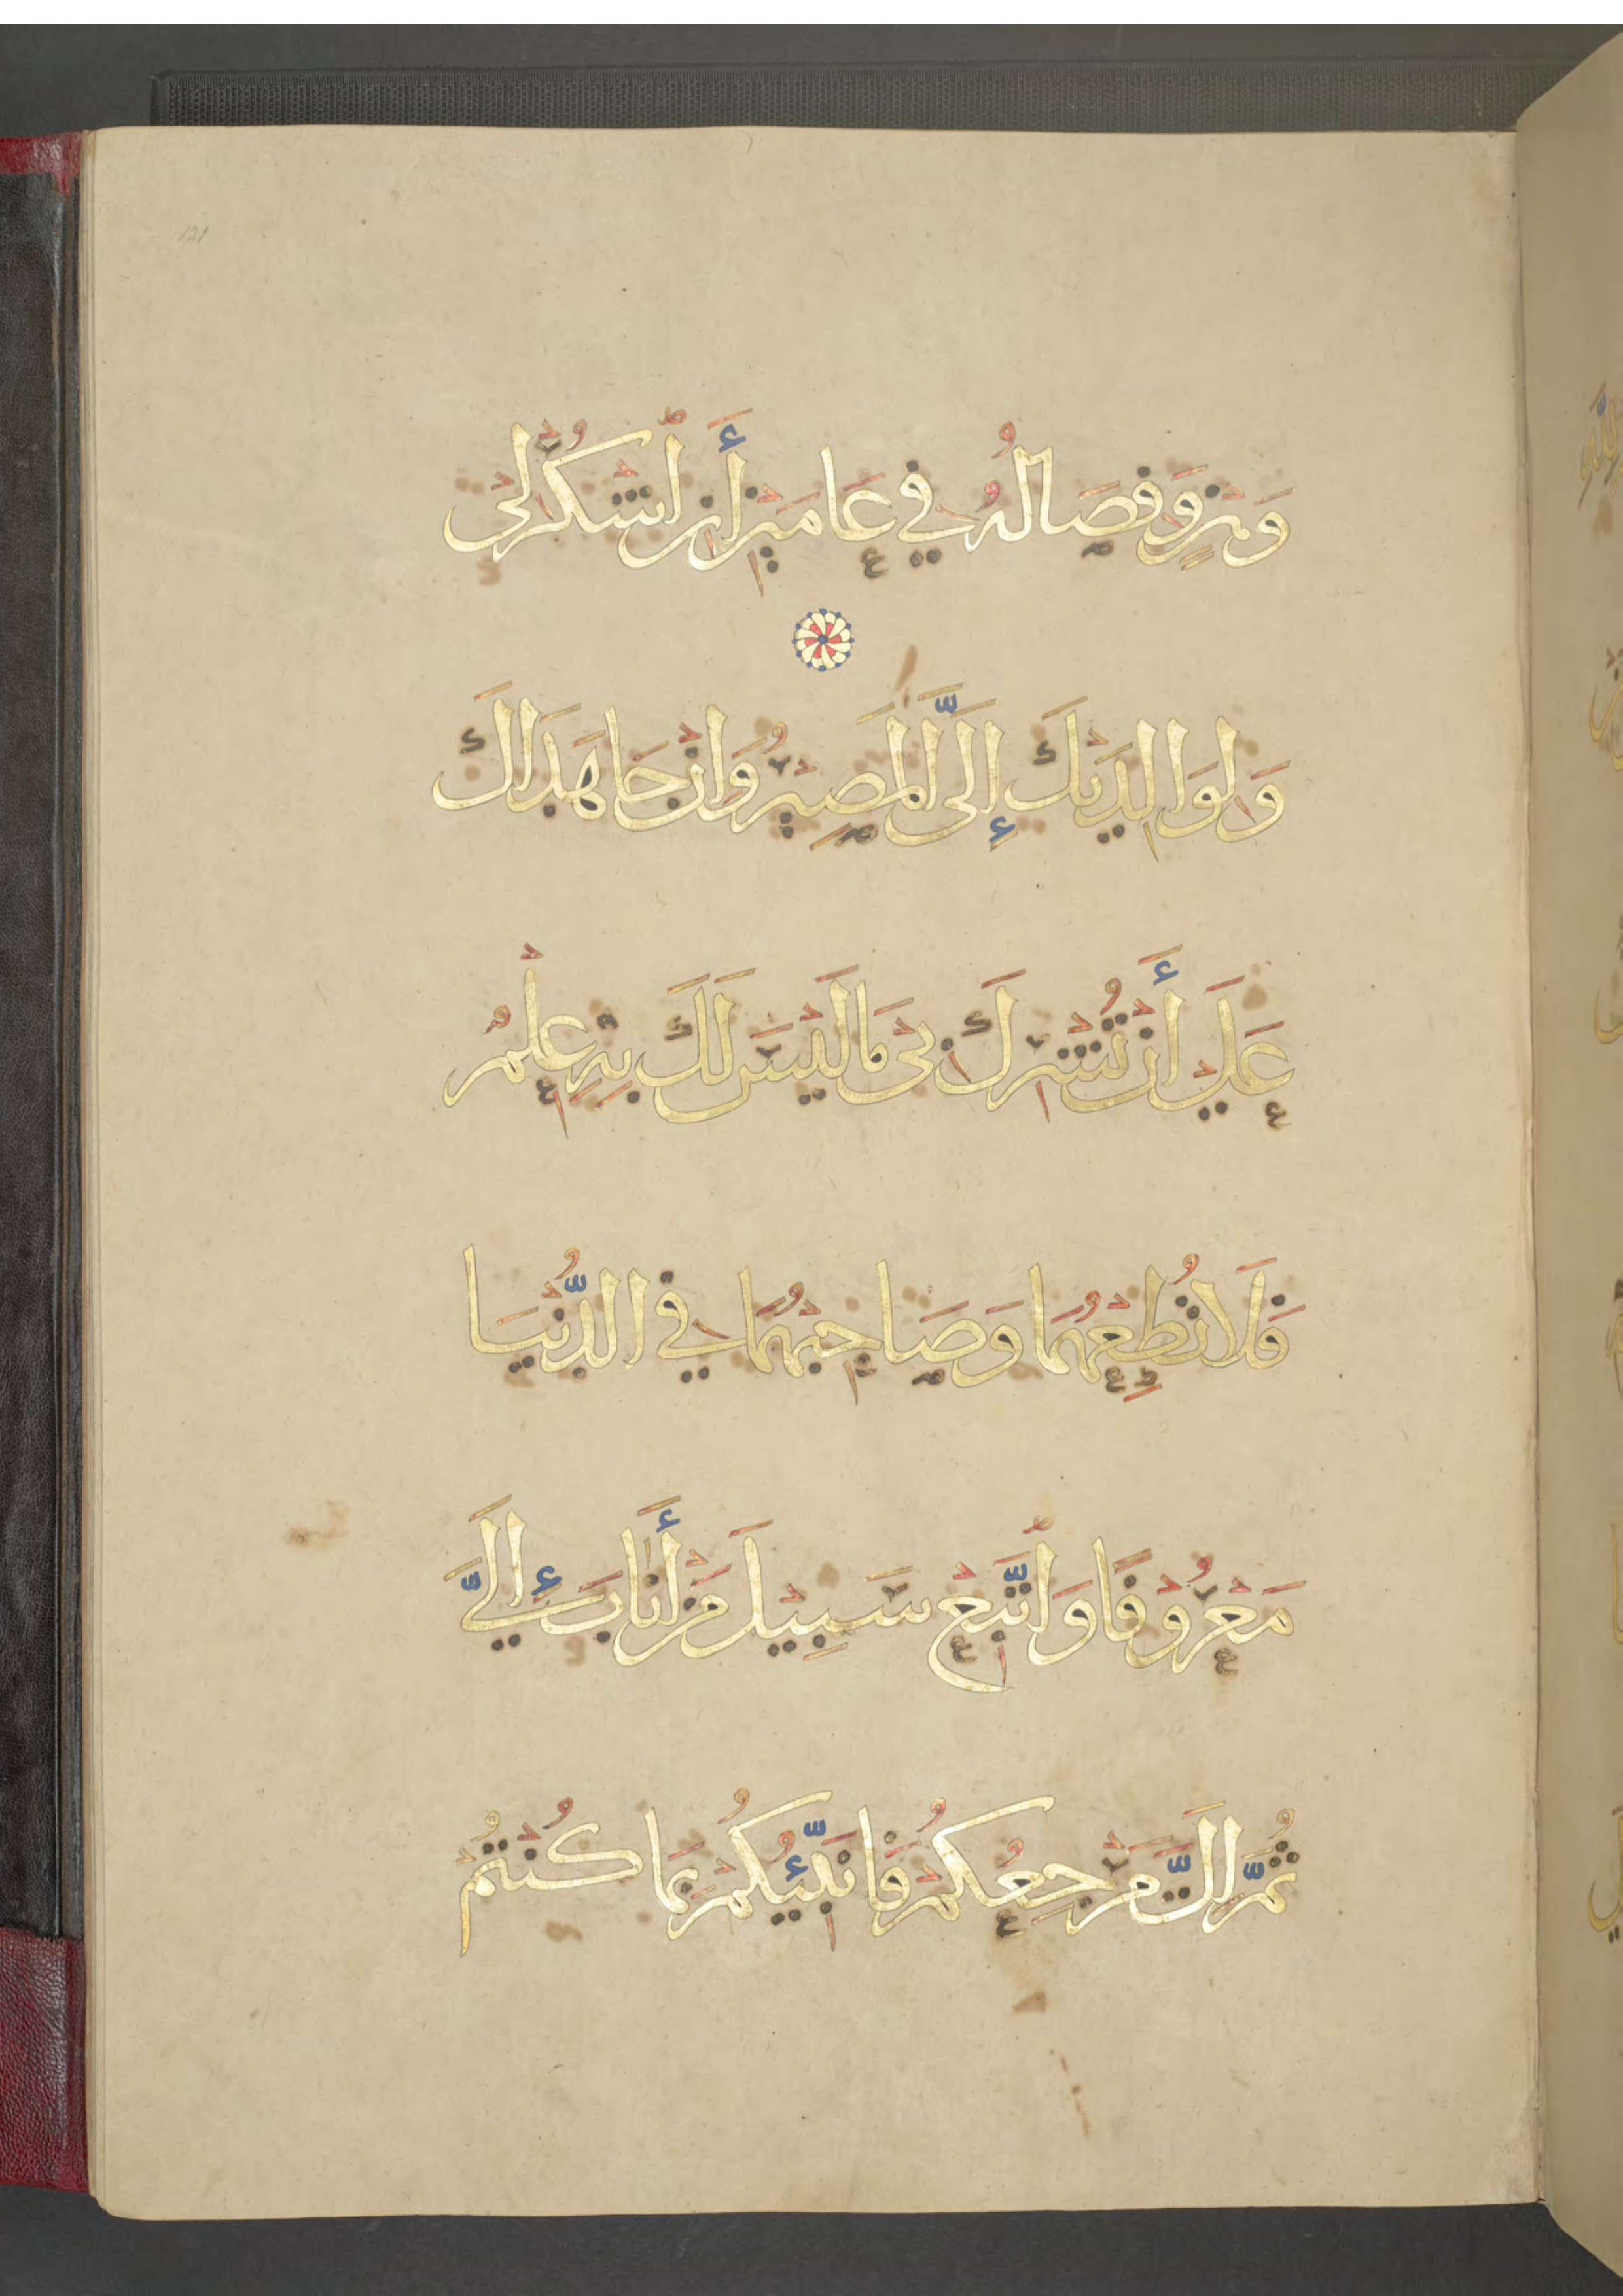 121
وَهْنٍ وَفِصَالُهُ فِي عَامَيْنِ أَنِ اشْكُرْ لِي
وَلِوَالِدَيْكَ إِلَيَّ الْمَصِيرُ وَإِنْ جَاهَدَاكَ
عَلَى أَنْ تُشْرِكَ بِي مَا لَيْسَ لَكَ بِهِ عِلْمٌ
فَلَا تُطِعْهُمَا وَصَاحِبْهُمَا فِي الدُّنْيَا
مَعْرُوفًا وَاتَّبِعْ سَبِيلَ مَنْ أَنَابَ إِلَيَّ
ثُمَّ إِلَيَّ مَرْجِعُكُمْ فَأُنَبِّئُكُمْ بِمَا كُنْتُمْ